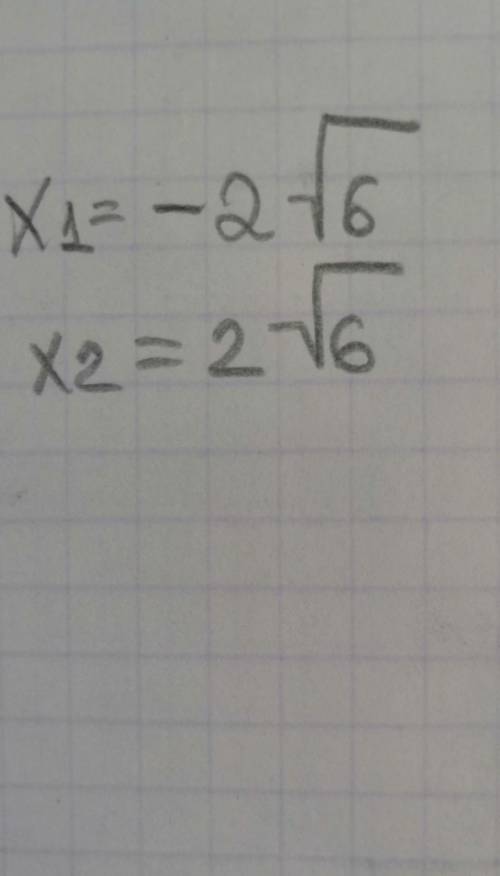 x1= -2√6
x2 = 2√6